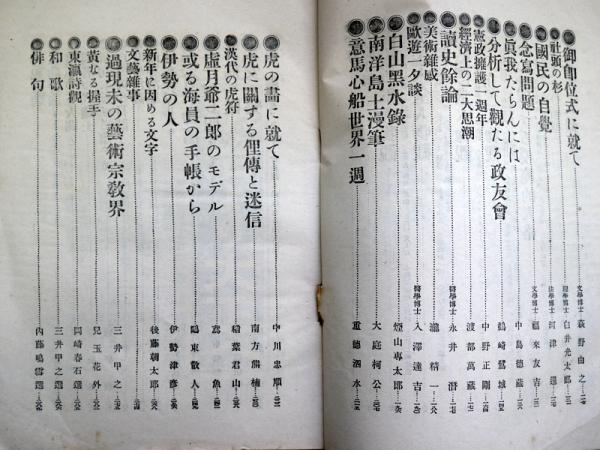 御卽位式に就て 文學博士 萩野由之
社頭の杉 理學博士 白井光太郎
國民の自覺 法學博士 河津暹
念寫問題 文學博士 福來友吉
眞我たらんには 中島德藏
分析して觀たる政友會 鶴崎鷺城
憲政擁護一週年 中野正剛
經濟上の二大思潮 渡部萬藏
讀史餘論 醫學博士 永井潛
美術雜感 瀧精一
歐遊一夕談 醫學博士 入澤達吉
白山黑水錄 煙山專太郎
南洋島土漫筆 大庭柯公
意馬心船世界一週 重德泗水
虎の畵に就て 中川忠順
虎に關する俚傳と迷信 南方熊楠
漢代の虎符 稻葉君山
虛月爺二郎のモデル 魚
或る海員の手帳から 陽東散人
伊勢の人 伊勢津彥
新年に因める文字 後藤朝太郎
文藝雜事
過現未の藝術宗敎界 三井甲之
黃なる握手 兒玉花外
東瀛詩觀 岡崎春石選
和歌 三井甲之選
俳句 內藤鳴雪選